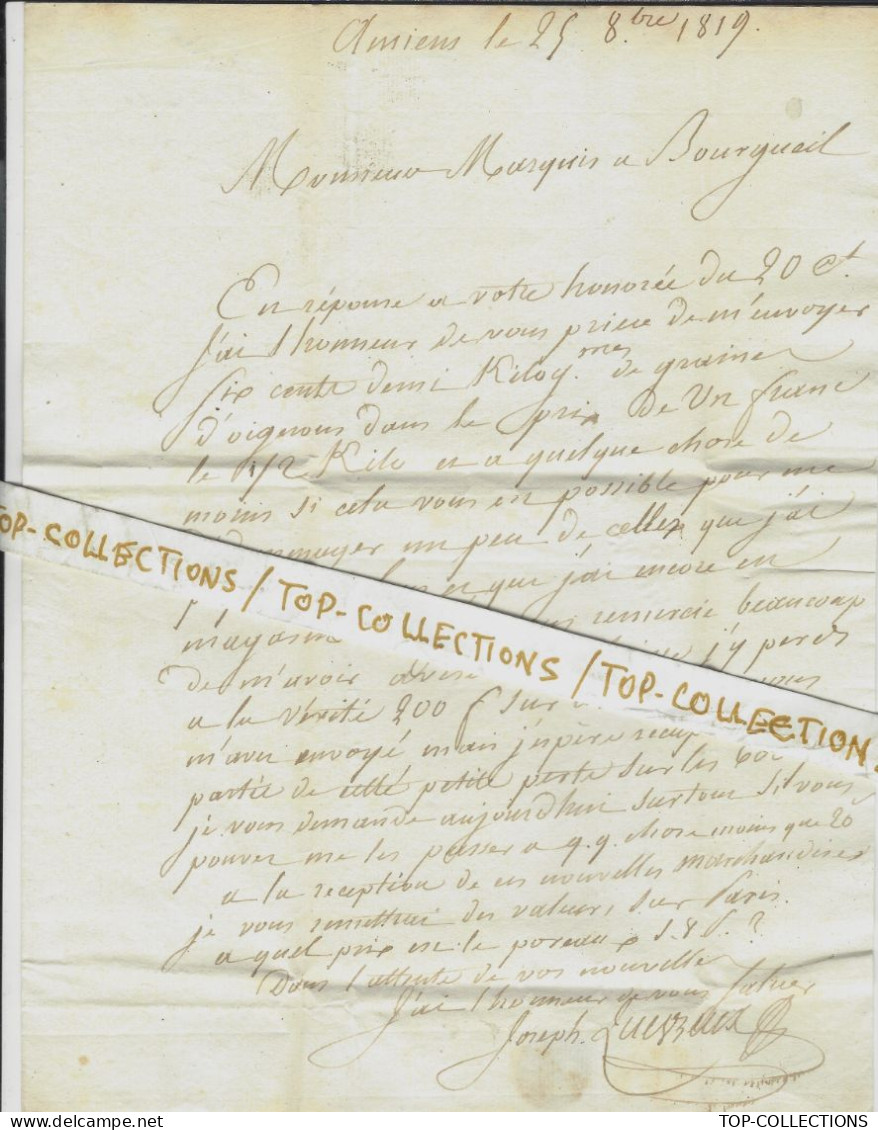 Amiens le 25 8.bre 1819.
Monsieur Marquis a Bourgueil
En réponse a votre honorée du 20 Ct.
J'ai l'honneur de vous prier de m'envoyer
six cents demi Kilog.mes de graine
d'oignons dans le prix de Un franc
le 1/2 Kilo et a quelque chose de
moins si cela vous est possible pour me
un peu de celles que j'ai
que j'ai encore en
TOP-COLLECTIONS / TOP-COLLECTIONS / TOP-COLLECTIONS
magasin remercie beaucoup
de m'avoir j'y perds
a la vérité 200 f sur vous
m'avez envoyé mais j'espère
partie de cette petite perte sur les 600
je vous demande aujourd'hui surtout si vous
pouvez me les passer a q.q. chose moins que 20
a la reception de ces nouvelles marchandises
je vous remettrai des valeurs sur Paris.
a quel prix est le poreaux S.V.P. ?
Dans l'attente de vos nouvelles
J'ai l'honneur de vous saluer
Joseph.
TOP-COLLECTIONS